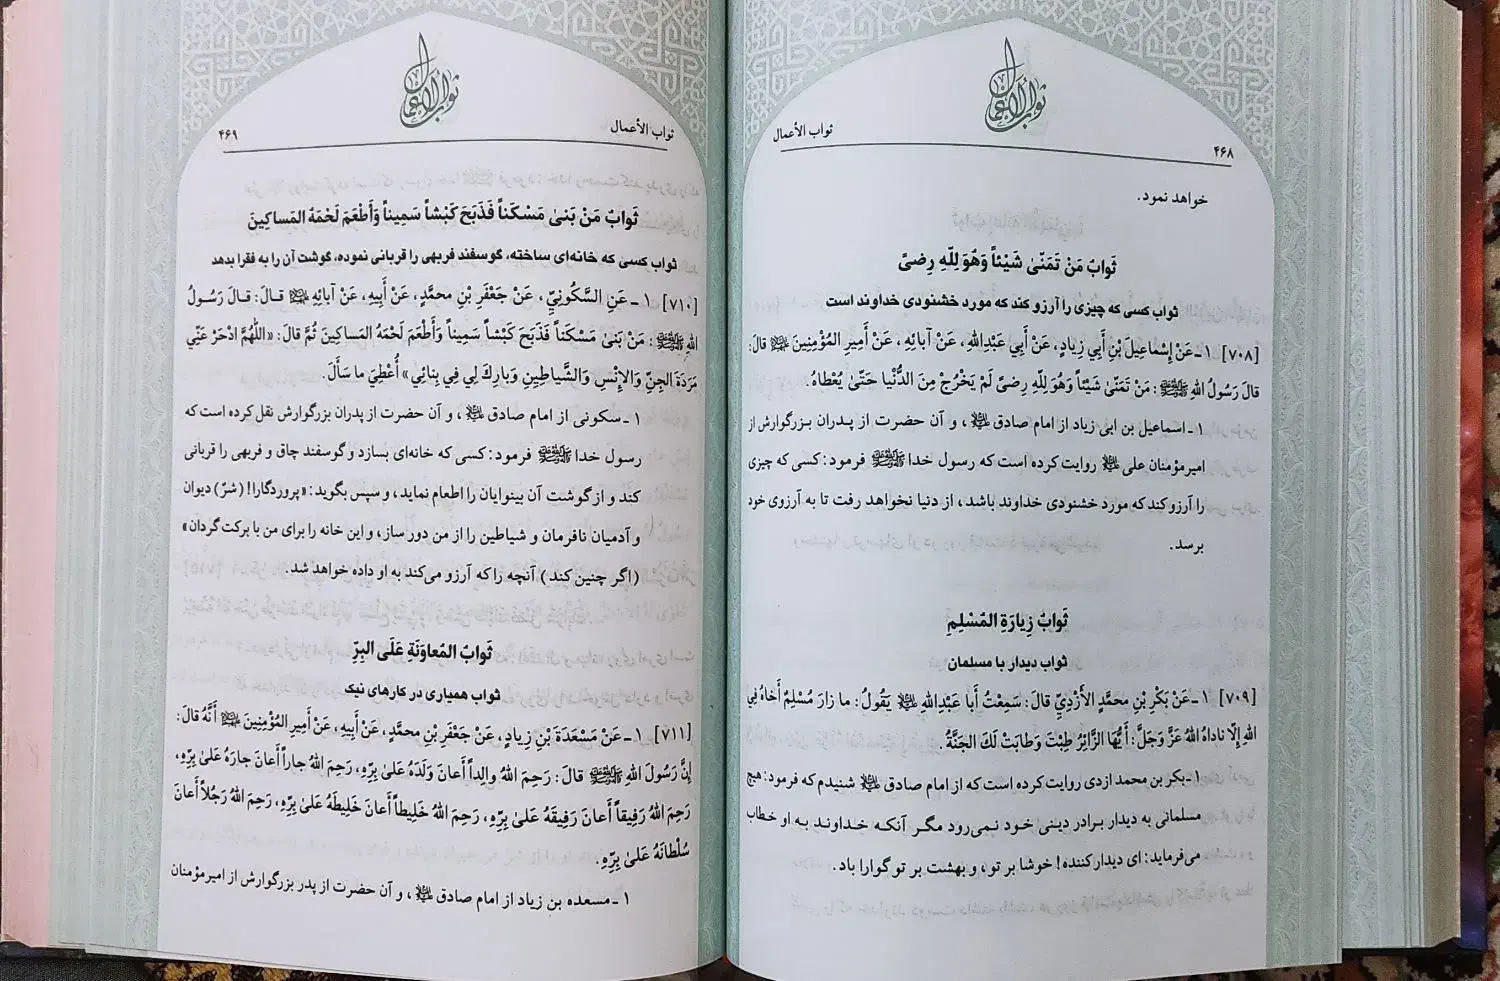 ۴۶۸
ثواب الأعمال
ثواب الأعمال
خواهد نمود.
ثَوابُ مَنْ تَمَنّىٰ شَيْئاً وَهُوَ لِلّٰهِ رِضىً
ثواب کسی که چیزی را آرزو کند که مورد خشنودی خداوند است
[۷۰۸] ۱ ـ عَنْ إِسْماعِيلَ بْنِ أَبِي زِيادٍ، عَنْ أَبِي عَبْدِاللهِ، عَنْ آبائِهِ، عَنْ أَمِيرِ المُؤْمِنِينَ ﷷ قالَ:
قالَ رَسُولُ اللهِ ﷺ: مَنْ تَمَنّىٰ شَيْئاً وَهُوَ لِلّٰهِ رِضىً لَمْ يَخْرُجْ مِنَ الدُّنْيا حَتّىٰ يُعْطاهُ.
۱ ـ اسماعیل بن ابی زیاد از امام صادق ﷷ، و آن حضرت از پدران بزرگوارش از
امیرمؤمنان علی ﷷ روایت کرده است که رسول خدا ﷺ فرمود: کسی که چیزی
را آرزو کند که مورد خشنودی خداوند باشد، از دنیا نخواهد رفت تا به آرزوی خود
برسد.
ثَوابُ زِيارَةِ المُسْلِمِ
ثواب دیدار با مسلمان
[۷۰۹] ۱ ـ عَنْ بَكْرِ بْنِ محمَّدٍ الأَزْدِيِّ قالَ: سَمِعْتُ أَبا عَبْدِاللهِ ﷷ يَقُولُ: ما زارَ مُسْلِمٌ أَخاهُ فِي
اللهِ إِلّا ناداهُ اللهُ عَزَّ وَجَلَّ: أَيُّهَا الزّائِرُ طِبْتَ وَطابَتْ لَكَ الجَنَّةُ.
۱ ـ بکر بن محمد ازدی روایت کرده است که از امام صادق ﷷ شنیدم که فرمود: هیچ
مسلمانی به دیدار برادر دینی خود نمی‌رود مگر آنکه خداوند به او خطاب
می‌فرماید: ای دیدار کننده! خوشا بر تو، و بهشت بر تو گوارا باد.
ثواب الأعمال
ثواب الأعمال
۴۶۹
ثَوابُ مَنْ بَنىٰ مَسْكَناً فَذَبَحَ كَبْشاً سَمِيناً وَأَطْعَمَ لَحْمَهُ المَساكِينَ
ثواب کسی که خانه‌ای ساخته، گوسفند فربهی را قربانی نموده، گوشت آن را به فقرا بدهد
[۷۱۰] ۱ ـ عَنِ السَّكُونِيِّ، عَنْ جَعْفَرِ بْنِ محمَّدٍ، عَنْ أَبِيهِ، عَنْ آبائِهِ ﷷ قالَ: قالَ رَسُولُ
اللهِ ﷺ: مَنْ بَنىٰ مَسْكَناً فَذَبَحَ كَبْشاً سَمِيناً وَأَطْعَمَ لَحْمَهُ المَساكِينَ ثُمَّ قالَ: «اللّٰهُمَّ ادْحَرْ عَنِّي
مَرَدَةَ الجِنِّ وَالإِنْسِ وَالشَّياطِينِ وَبارِكْ لِي فِي بِنائِي» أُعْطِيَ ما سَأَلَ.
۱ ـ سکونی از امام صادق ﷷ، و آن حضرت از پدران بزرگوارش نقل کرده است که
رسول خدا ﷺ فرمود: کسی که خانه‌ای بسازد و گوسفند چاق و فربهی را قربانی
کند و از گوشت آن بینوایان را اطعام نماید، و سپس بگوید: «پروردگارا! (شرّ) دیوان
و آدمیان نافرمان و شیاطین را از من دور ساز، و این خانه را برای من با برکت گردان»
(اگر چنین کند) آنچه را که آرزو می‌کند به او داده خواهد شد.
ثَوابُ المُعاوَنَةِ عَلَى البِرِّ
ثواب همیاری در کارهای نیک
[۷۱۱] ۱ ـ عَنْ مَسْعَدَةَ بْنِ زِيادٍ، عَنْ جَعْفَرِ بْنِ محمَّدٍ، عَنْ أَبِيهِ، عَنْ أَمِيرِ المُؤْمِنِينَ ﷷ أَنَّهُ قالَ:
إِنَّ رَسُولَ اللهِ ﷺ قالَ: رَحِمَ اللهُ والِداً أَعانَ وَلَدَهُ عَلىٰ بِرِّهِ، رَحِمَ اللهُ جاراً أَعانَ جارَهُ عَلىٰ بِرِّهِ،
رَحِمَ اللهُ رَفِيقاً أَعانَ رَفِيقَهُ عَلىٰ بِرِّهِ، رَحِمَ اللهُ خَلِيطاً أَعانَ خَلِيطَهُ عَلىٰ بِرِّهِ، رَحِمَ اللهُ رَجُلاً أَعانَ
سُلْطانَهُ عَلىٰ بِرِّهِ.
۱ ـ مسعده بن زیاد از امام صادق ﷷ، و آن حضرت از پدر بزرگوارش از امیرمؤمنان